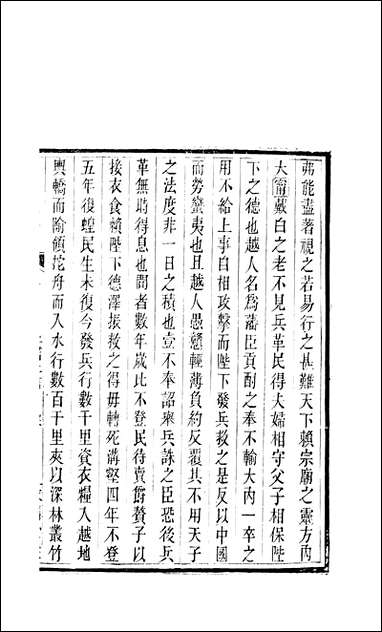 弗能盡著視之若易行之甚難天下賴宗廟之靈方內
大甯戴白之老不見兵革民得夫婦相守父子相保陛
下之德也越人名爲藩臣貢酎之奉不輸大內一卒之
用不給上事自相攻擊而陛下發兵救之是反以中國
而勞蠻夷也且越人愚戇輕薄負約反覆其不用天子
之法度非一日之積也壹不奉詔舉兵誅之臣恐後兵
革無時得息也間者數年歲比不登民待賣爵贅子以
接衣食賴陛下德澤振救之得毋轉死溝壑四年不登
五年復蝗民生未復今發兵行數千里資衣糧入越地
輿轎而隃領拕舟而入水行數百千里夾以深林叢竹